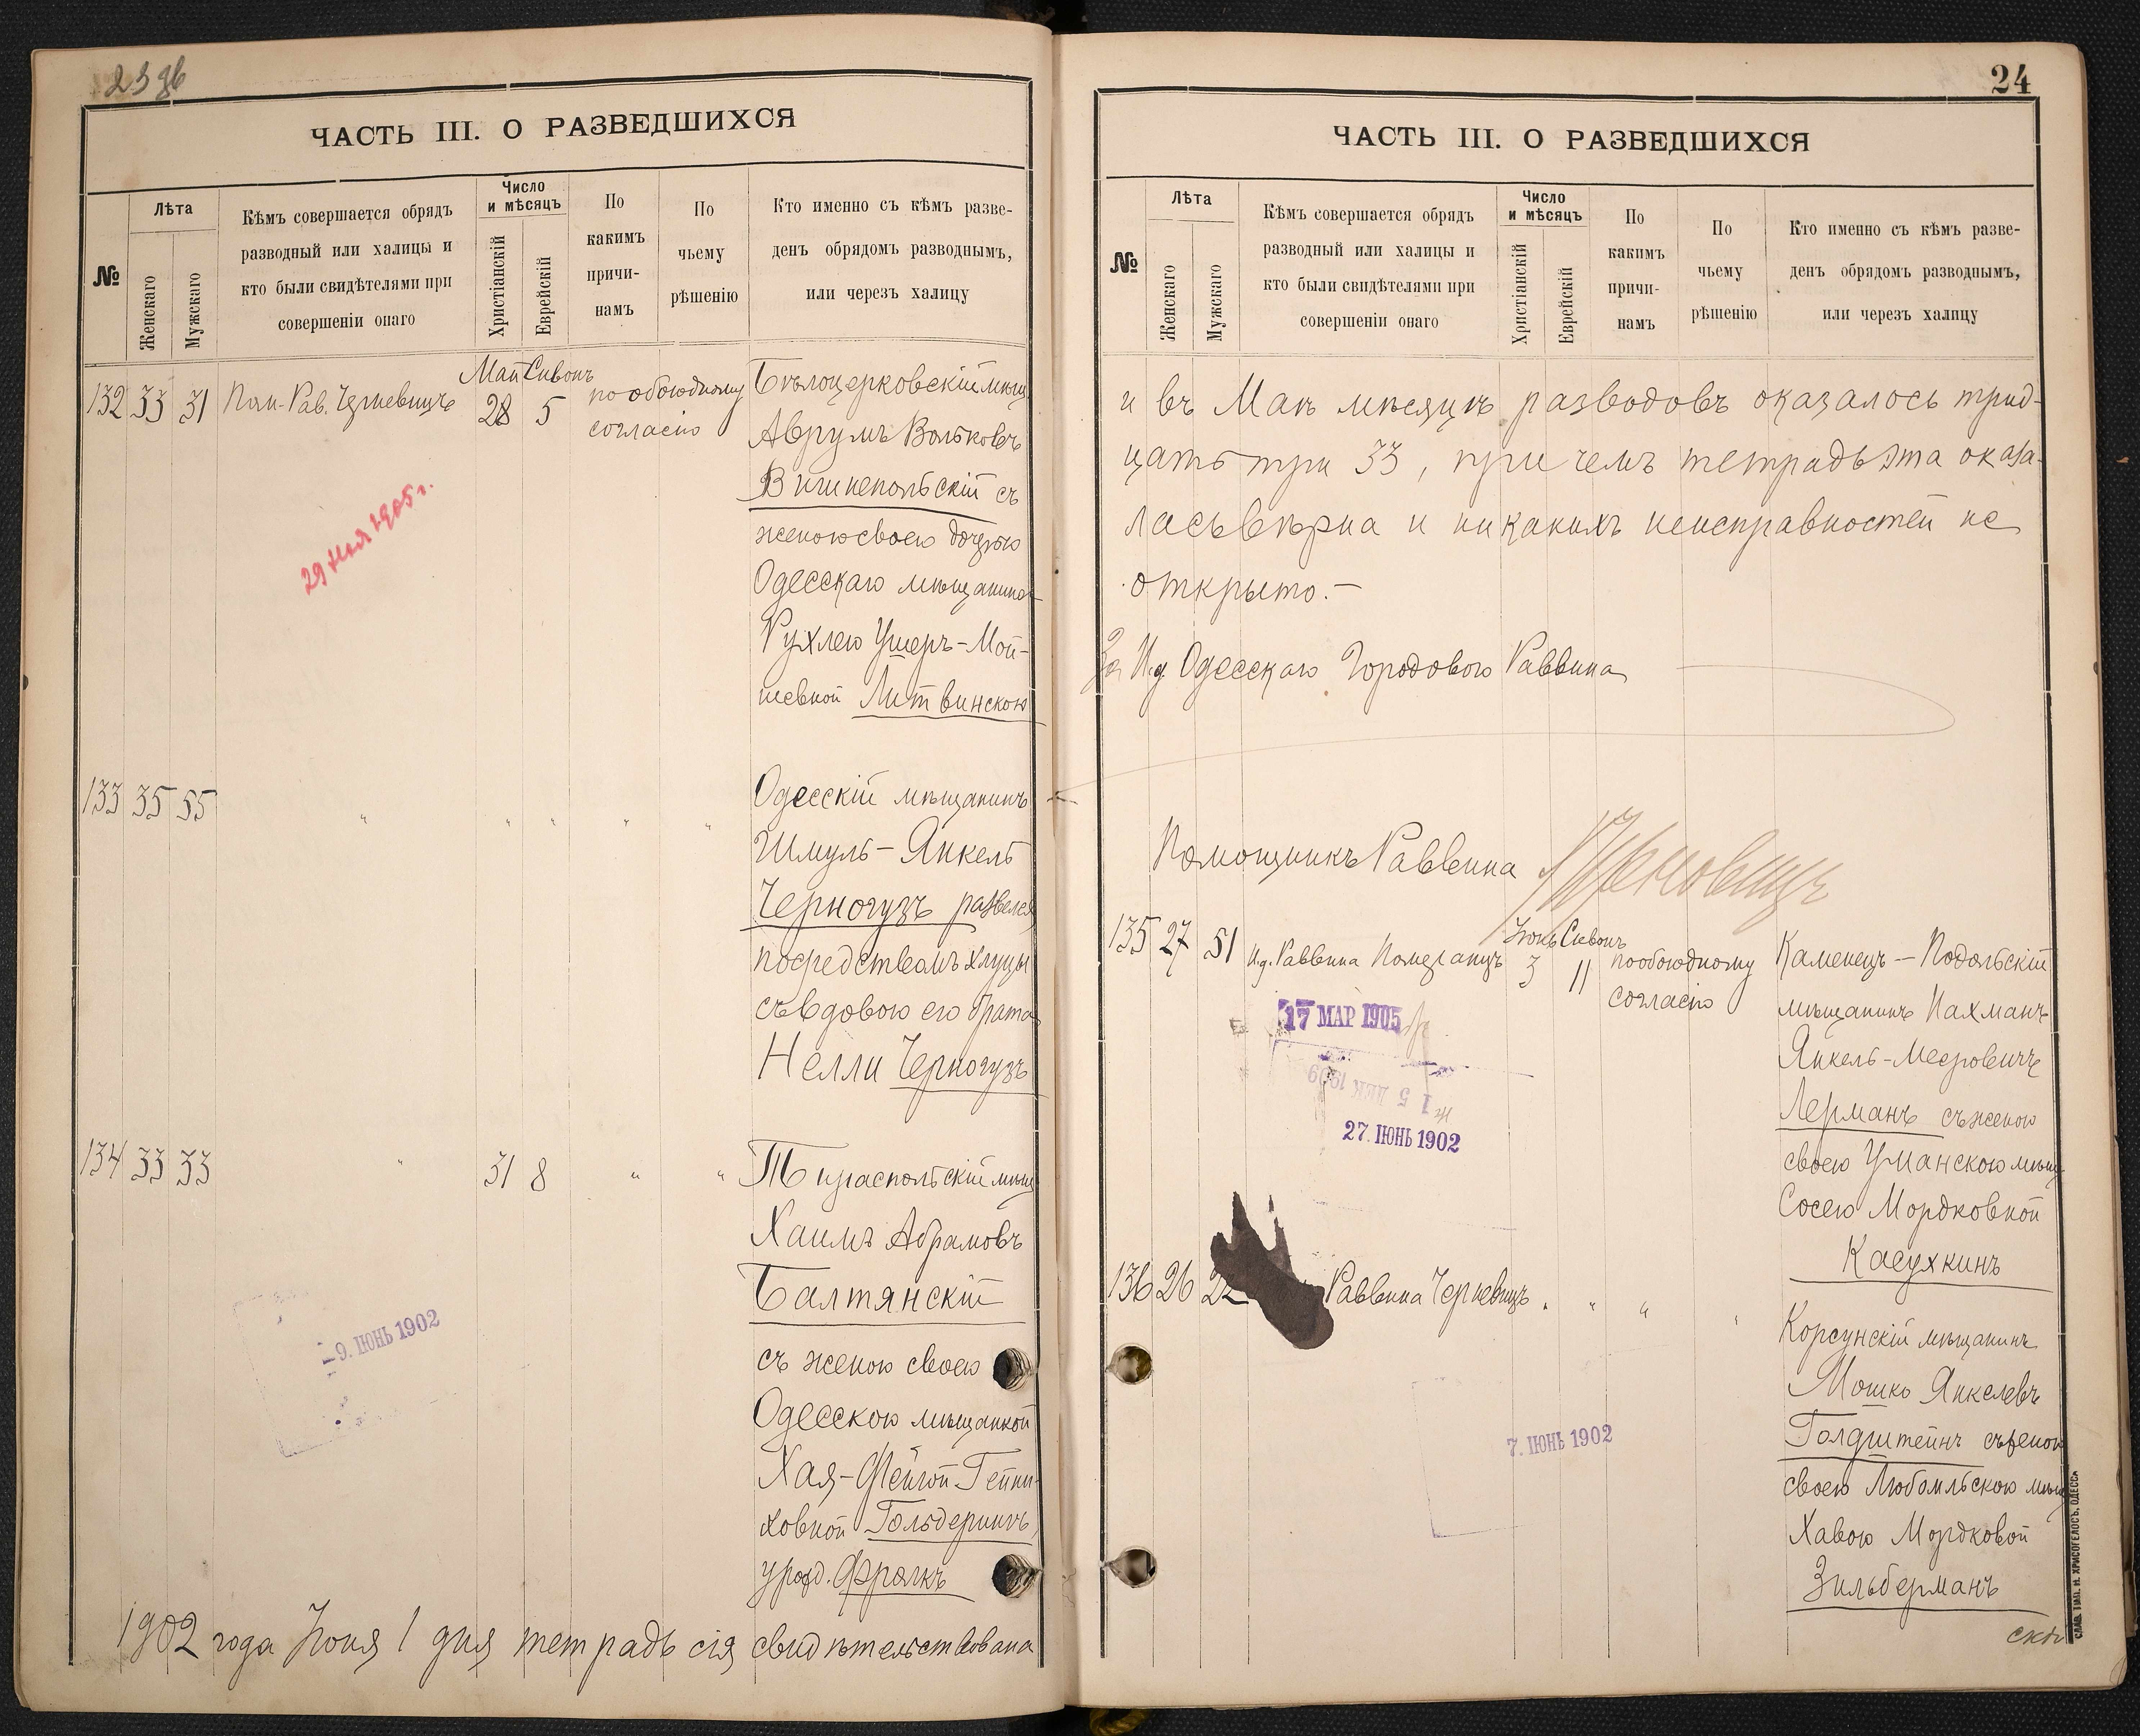 ЧАСТЬ III. О РАЗВЕДШИХСЯ
№
Лѣта
Женскаго
Мужскаго
Кѣмъ совершается обрядъ
разводный или халицы и
кто были свидѣтелями при
совершеніи онаго
Число
и мѣсяцъ
Христіанскій
Еврейскій
По
какимъ
причи-
намъ
По
чьему
рѣшенію
Кто именно съ кѣмъ разве-
денъ обрядомъ разводнымъ,
или черезъ халицу
Май Сивонъ
132 33 31 28 5 по обоюдному
согласію
Бѣлоцерковскій мѣщ.
Аврумъ Вольковъ
Вишнепольскій съ
женою своею дочерью
Одесскаго мѣщанина
Рухлею Ушеръ-Мой-
шевной Литвинскою
1905 г.
133 35 55 " " " " "
Одесскій мѣщанинъ
Шмуль-Янкель
Черногузъ развелся
посредствомъ
съ вдовою его брата
Нелли Черногузъ
134 33 33 " 31 8 " "
Тираспольскій мѣщ
Хаимъ Абрамовъ
Балтянскій
съ женою своею
Одесскою мѣщанкой
Хая-Фейгой Гейни-
ховной Гольдерингъ,
урожд.
-9. ІЮНЬ 1902
1902 года Іюня 1 дня тетрадь сія свидѣтельствована
24
ЧАСТЬ III. О РАЗВЕДШИХСЯ
№
Лѣта
Женскаго
Мужскаго
Кѣмъ совершается обрядъ
разводный или халицы и
кто были свидѣтелями при
совершеніи онаго
Число
и мѣсяцъ
Христіанскій
Еврейскій
По
какимъ
причи-
намъ
По
чьему
рѣшенію
Кто именно съ кѣмъ разве-
денъ обрядомъ разводнымъ,
или черезъ халицу
и въ Маѣ мѣсяцѣ разводовъ оказалось трид-
цать три 33, при чемъ тетрадь эта оказа-
лась вѣрна и никакихъ неисправностей не
открыто.-
За И.д. Одесскаго Городового Раввина
Помощникъ Раввина
Іюнь Сивонъ
135 27 51 И.д. Раввина Померанцъ 3 11 по обоюдному
согласію
Каменецъ-Подольскій
мѣщанинъ Нахманъ
Янкель-Мееровичъ
Лерманъ съ женою
своею Уманскою мѣщ.
Сосею Мордковной
Касухкинъ
17 МАР 1905
15 ДЕК 1909
27. ІЮНЬ 1902
136 26 Раввина " " " "
Корсунскій мѣщанинъ
Мошко Янкелевъ
Голдштейнъ съ женою
своею Любомльскою мѣщ
Хавою Мордковой
Зильберманъ
7. ІЮНЬ 1902
СЛАВ. ТИП. Н. ХРИСОГЕЛОСЪ. ОДЕССА